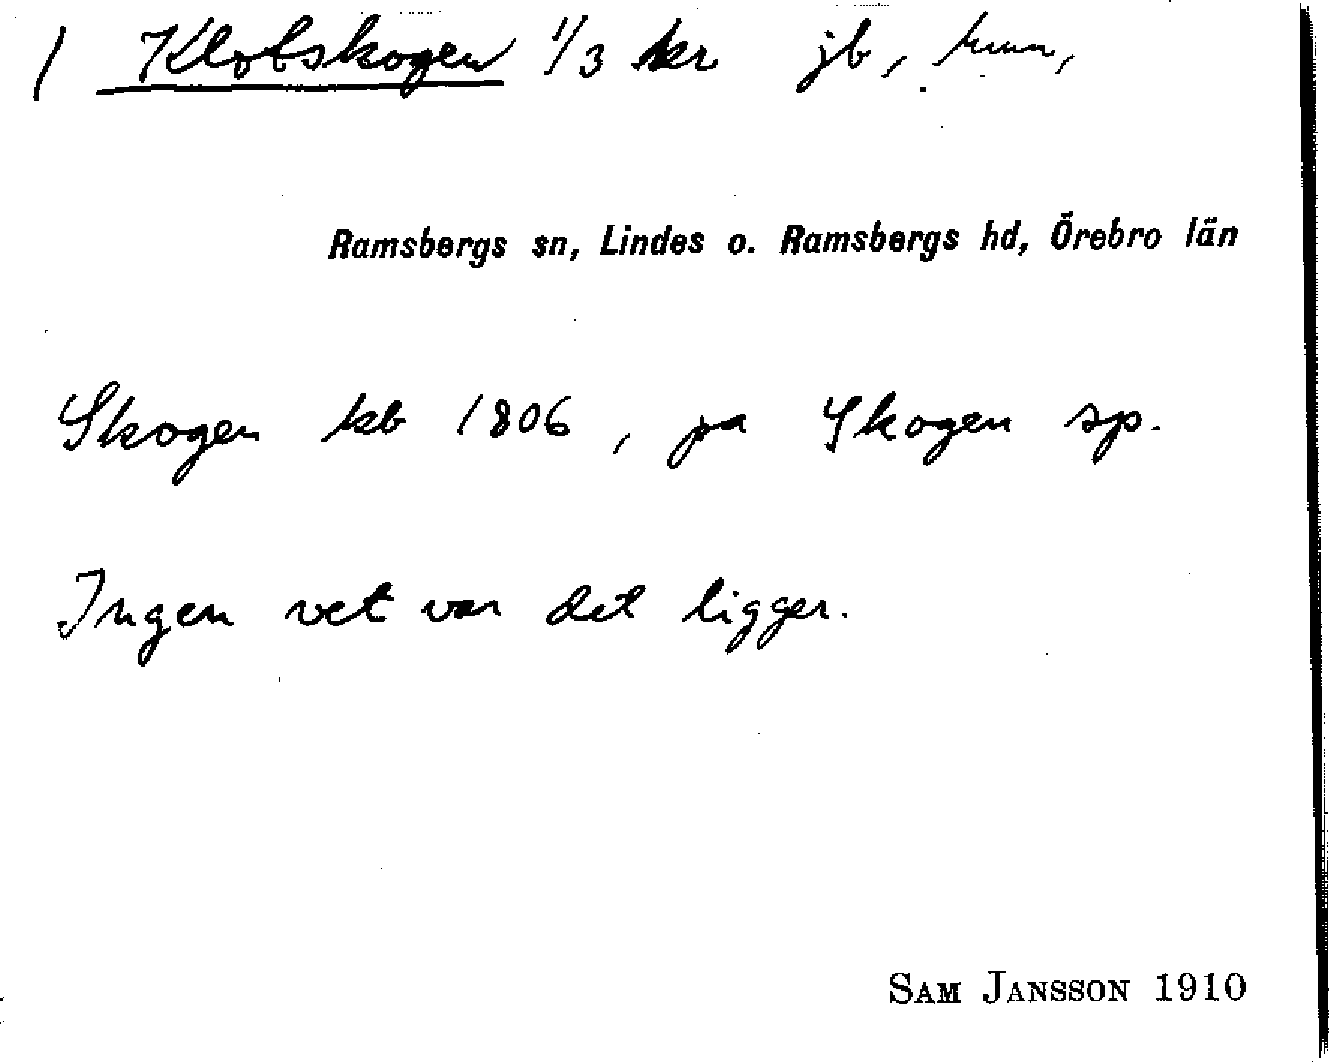 / Klotskogen 1/3 kr jb,
Ramsbergs sn, Lindes o. Ramsbergs hd, Örebro län
Skogen kb 1806, pa Skogen sp.
Ingen vet var det ligger.
SAM JANSSON 1910